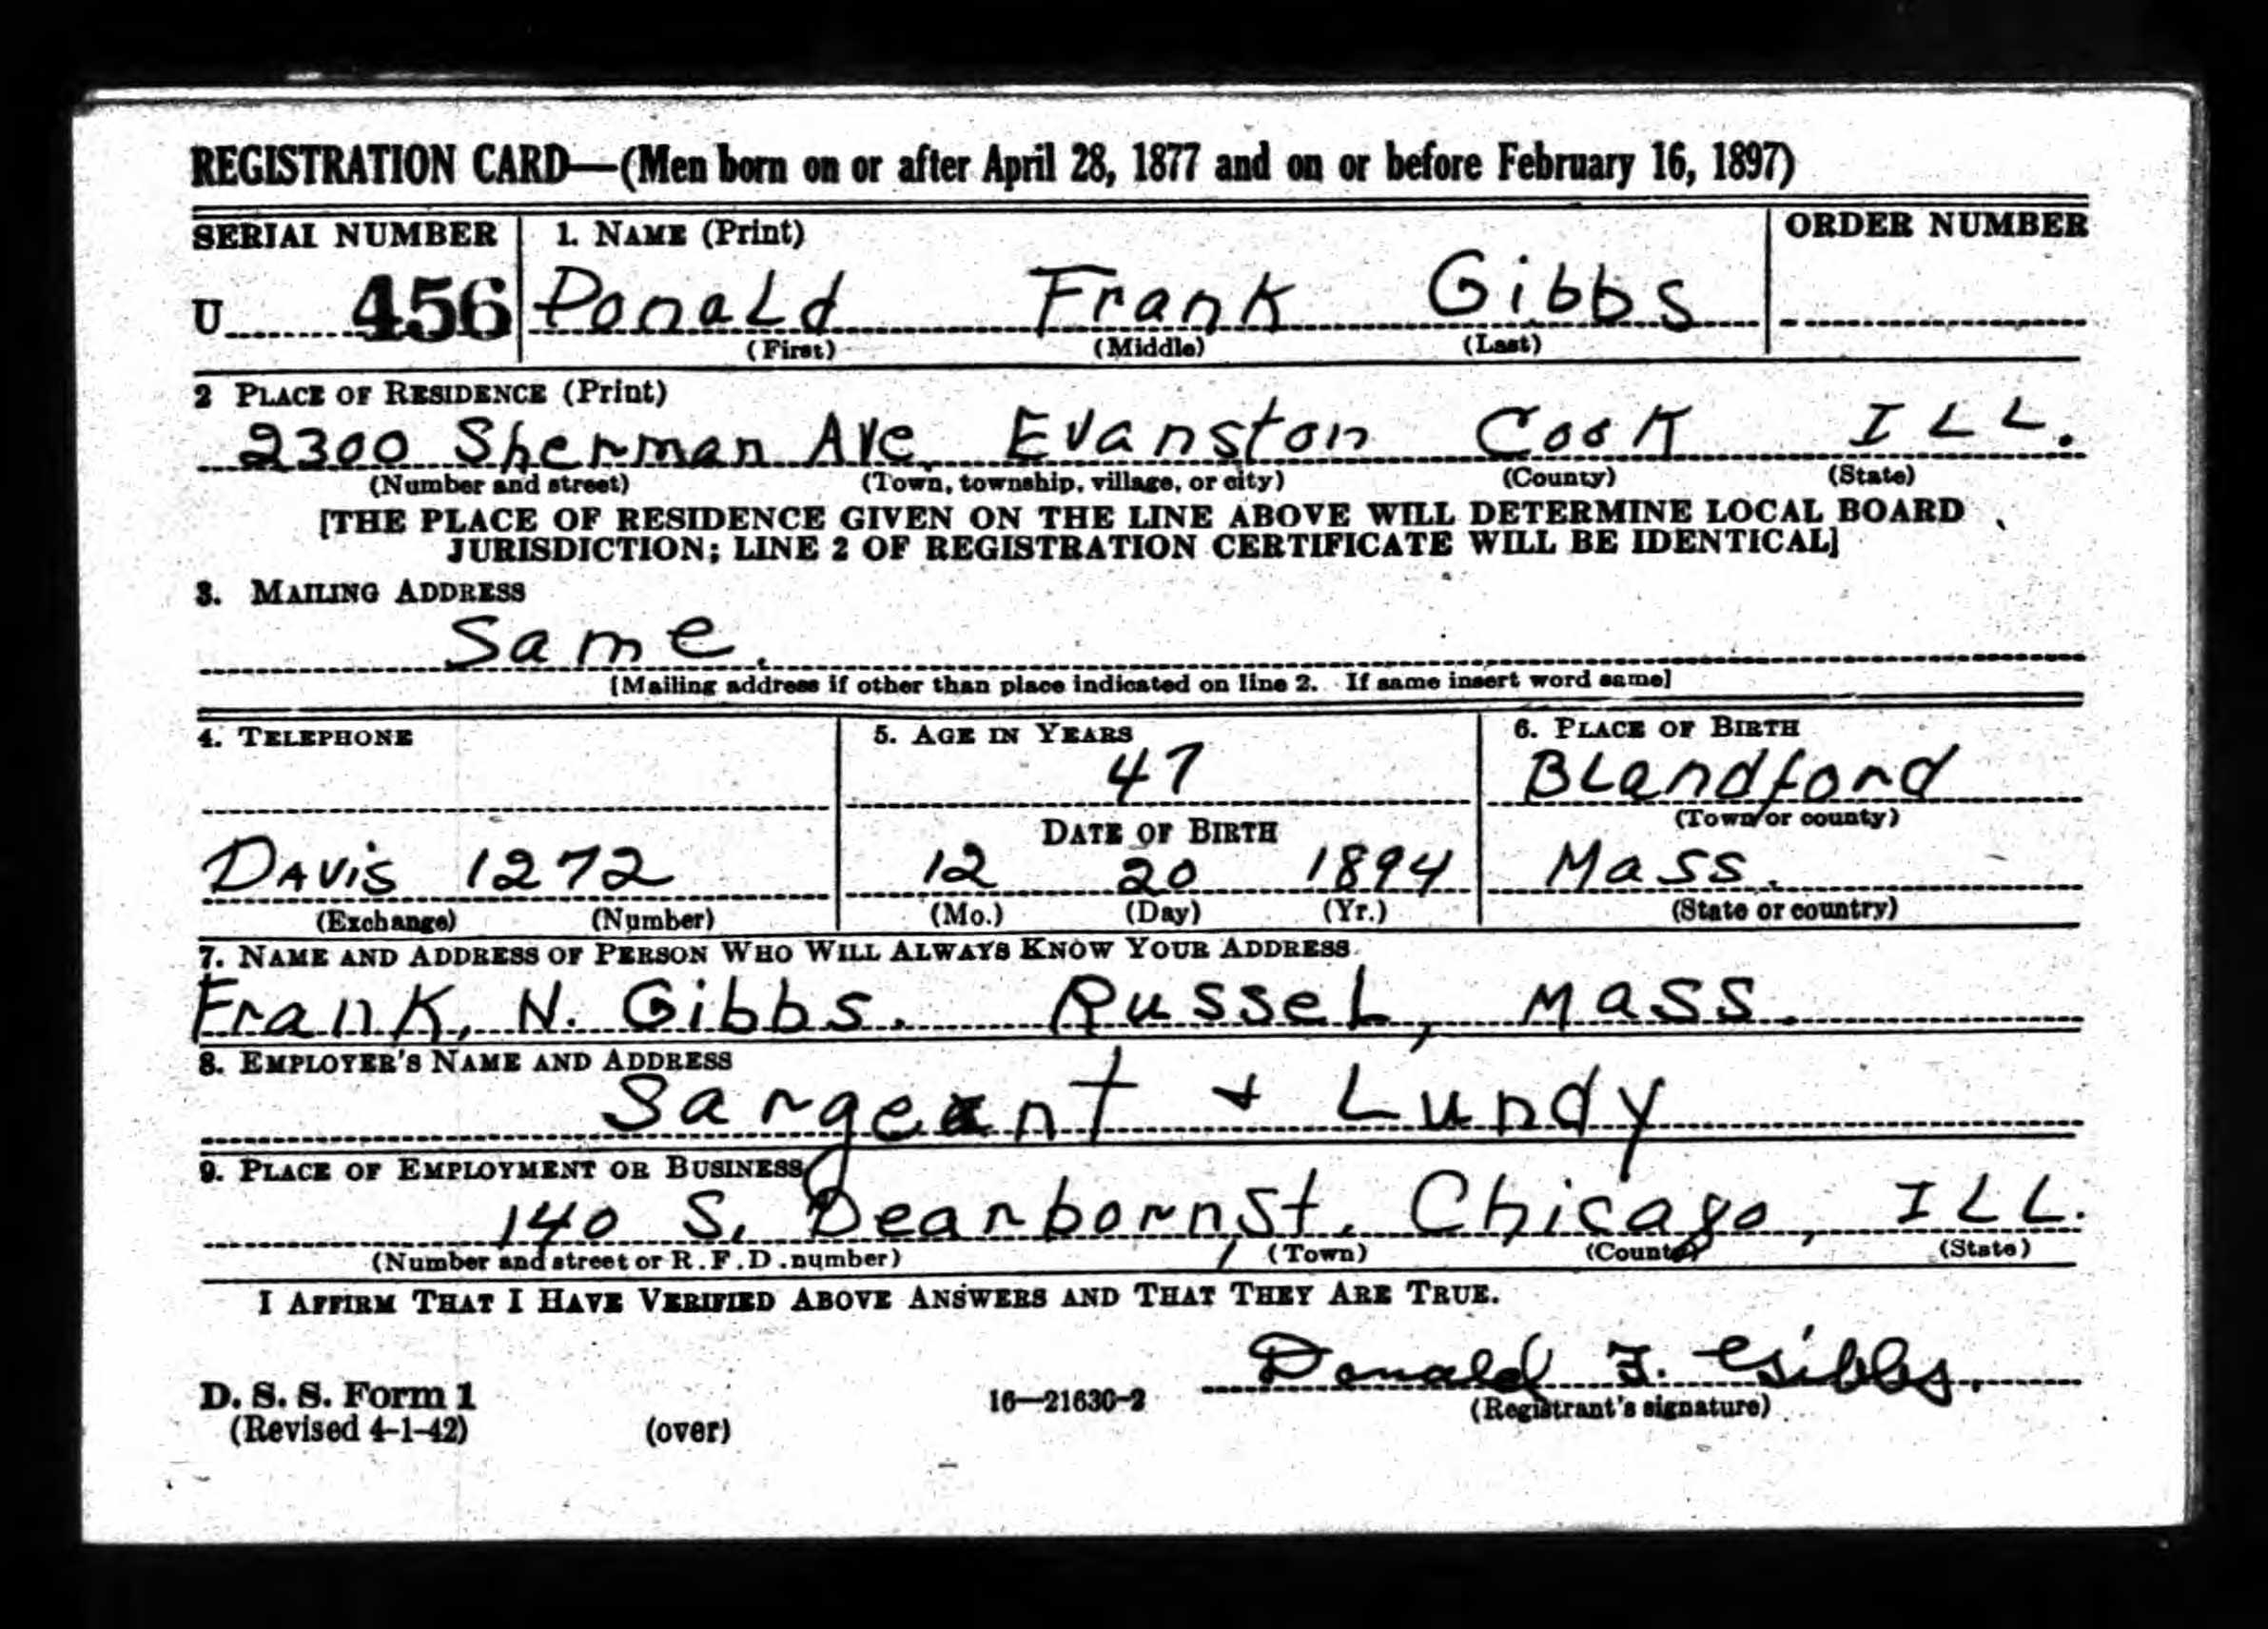 REGISTRATION CARD—(Men born on or after April 28, 1877 and on or before February 16, 1897)
SERIAL NUMBER 1. NAME (Print) ORDER NUMBER
U 456 Donald Frank Gibbs
(First) (Middle) (Last)
2 PLACE OF RESIDENCE (Print)
2300 Sherman Ave. Evanston Cook ILL.
(Number and street) (Town, township, village, or city) (County) (State)
[THE PLACE OF RESIDENCE GIVEN ON THE LINE ABOVE WILL DETERMINE LOCAL BOARD
JURISDICTION; LINE 2 OF REGISTRATION CERTIFICATE WILL BE IDENTICAL]
3. MAILING ADDRESS
Same.
[Mailing address if other than place indicated on line 2. If same insert word same]
4. TELEPHONE 5. AGE IN YEARS 6. PLACE OF BIRTH
47 Blandford
DATE OF BIRTH (Town or county)
Davis 1272 12 20 1894 Mass.
(Exchange) (Number) (Mo.) (Day) (Yr.) (State or country)
7. NAME AND ADDRESS OF PERSON WHO WILL ALWAYS KNOW YOUR ADDRESS
Frank, N. Gibbs. Russel, Mass.
8. EMPLOYER'S NAME AND ADDRESS
Sargent + Lundy
9. PLACE OF EMPLOYMENT OR BUSINESS
140 S. Dearborn St. Chicago, ILL.
(Number and street or R.F.D. number) (Town) (County) (State)
I AFFIRM THAT I HAVE VERIFIED ABOVE ANSWERS AND THAT THEY ARE TRUE.
Donald F. Gibbs.
D. S. S. Form 1 16—21630-2 (Registrant's signature)
(Revised 4-1-42) (over)